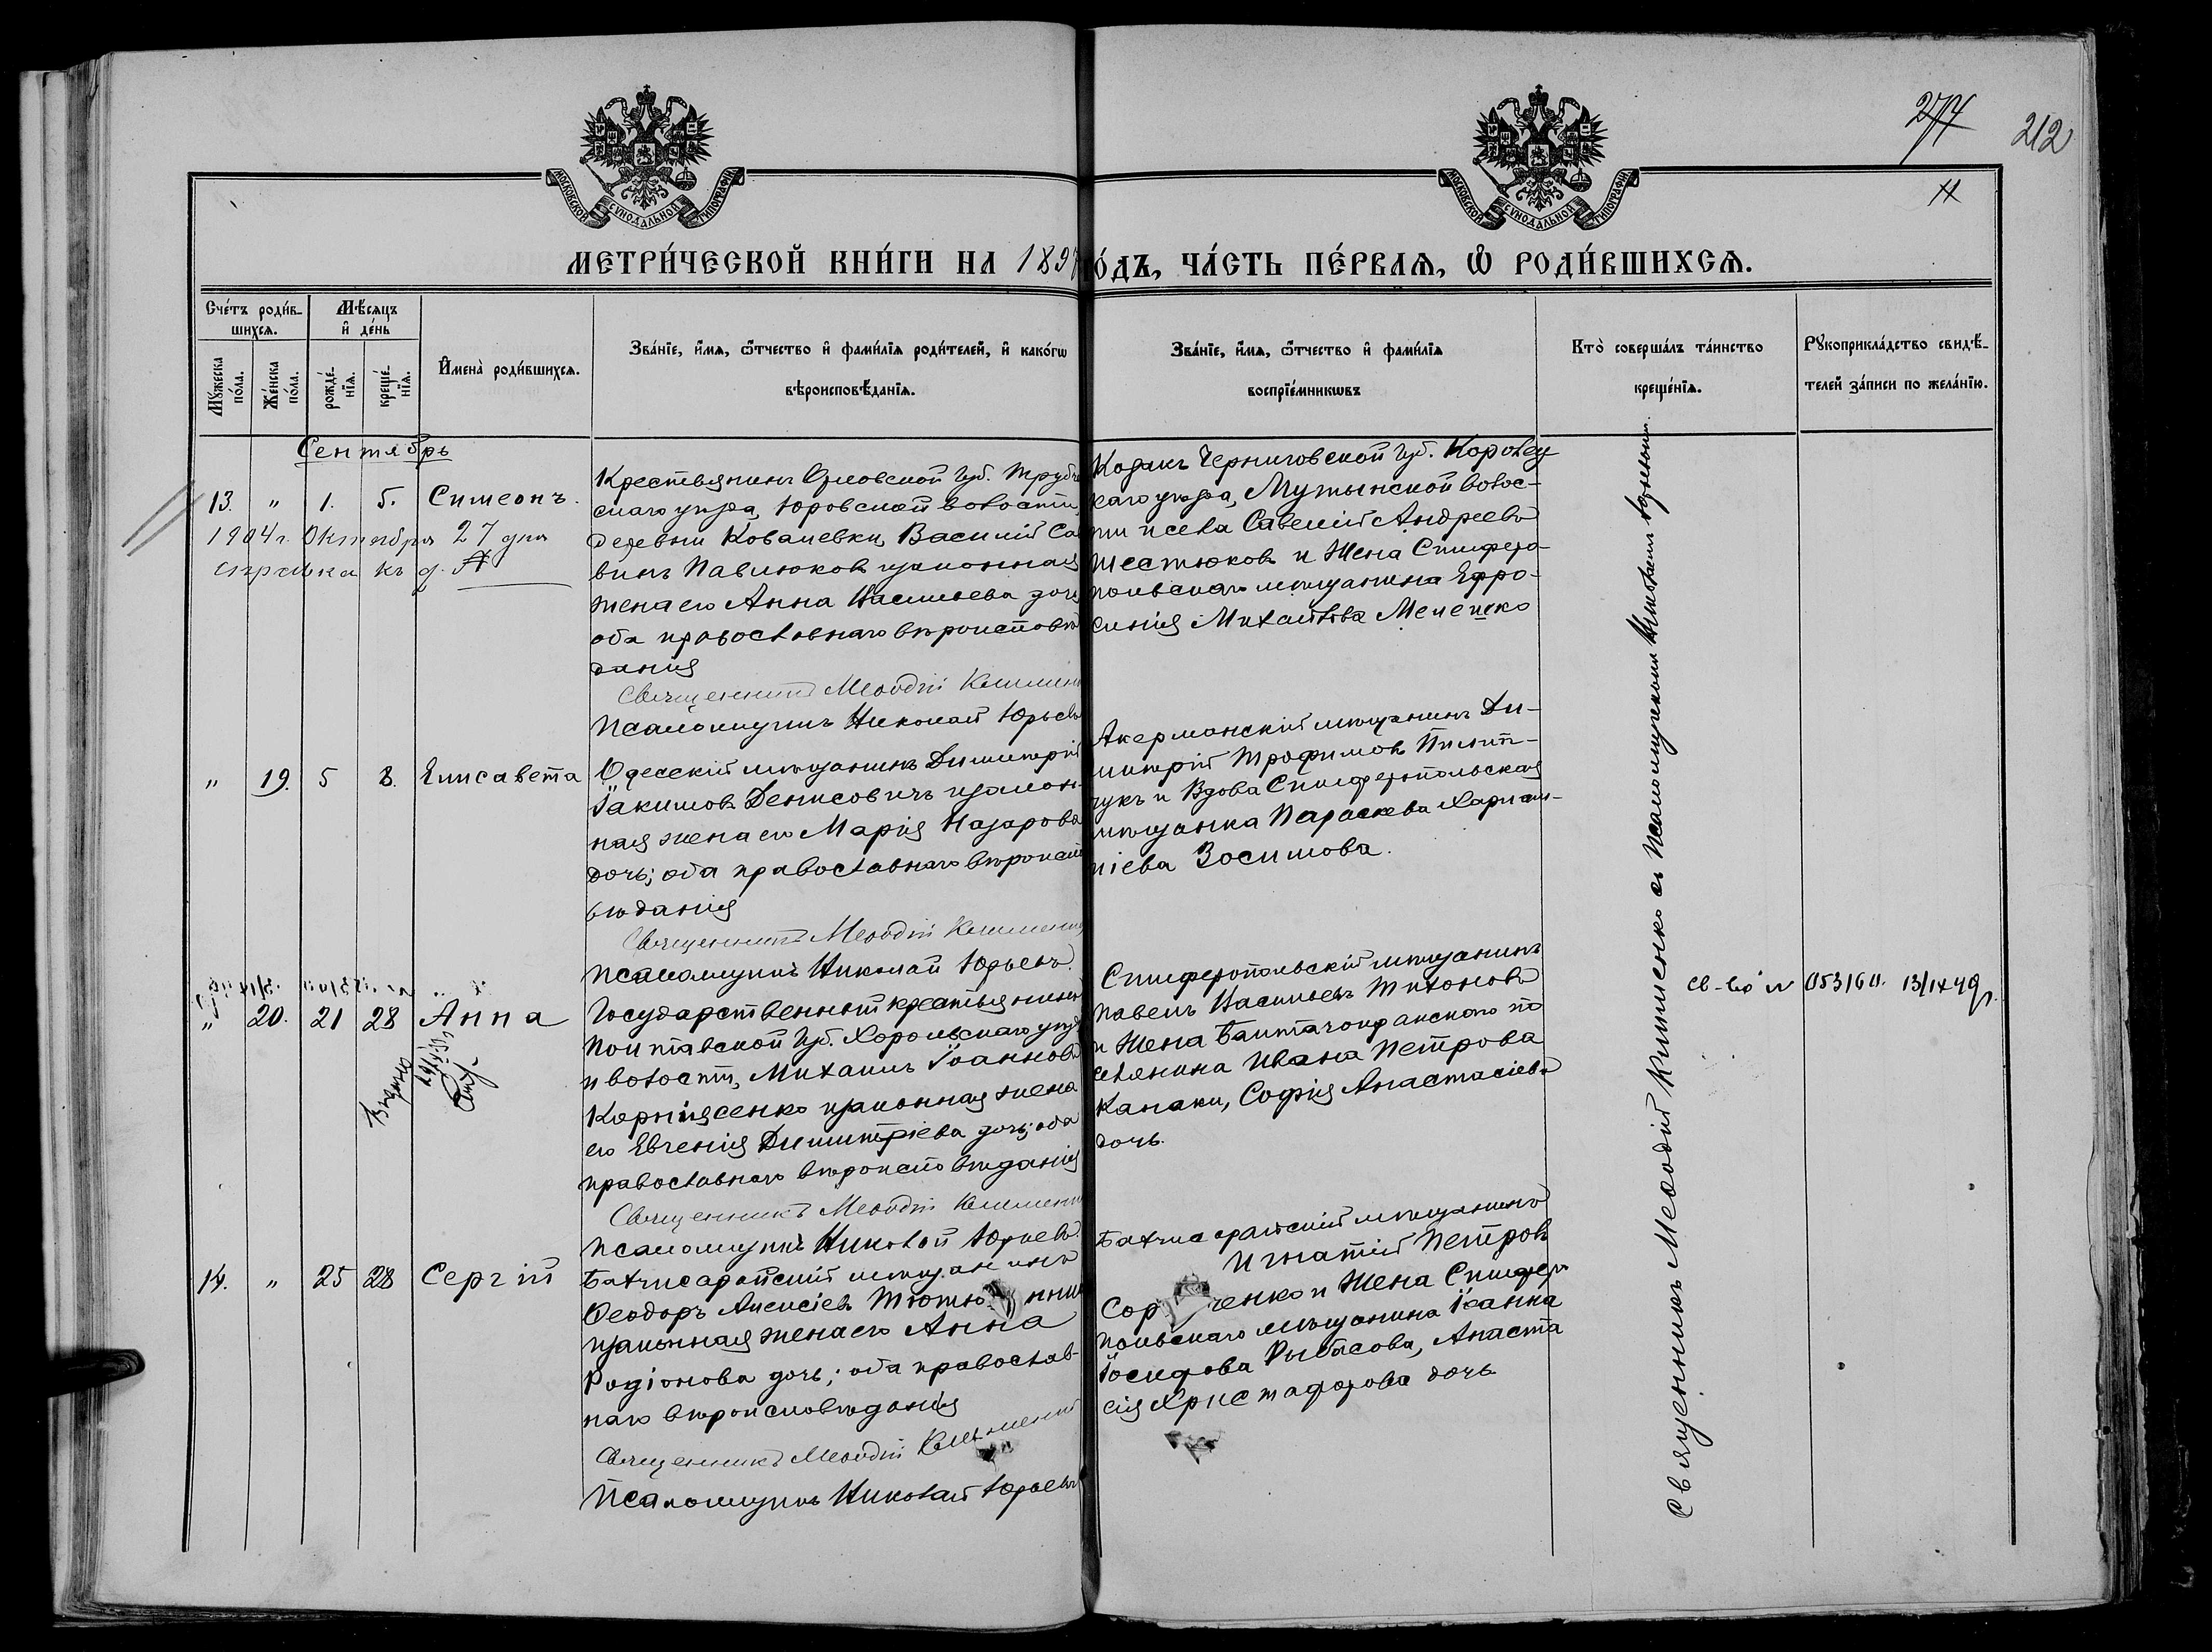 274
212
МОСКОВСКОЙ СѴНОДАЛЬНОЙ ТИПОГРАФІИ
МОСКОВСКОЙ СѴНОДАЛЬНОЙ ТИПОГРАФІИ
МЕТРИ́ЧЕСКОЙ КНИ́ГИ НА 1897
О́ДЪ, ЧА́СТЬ ПЕ́РВАЯ, Ѡ РОДИ́ВШИХСЯ.
Сче́тъ роди́в-
шихся.
Мѣсяцъ
и҆ де́нь
Мꙋ́жеска по́ла.
Же́нска по́ла.
рожде́-
нїя.
креще́-
нїя.
И҆мена̀ роди́вшихся.
Зва́нїе, и҆́мя, ѻ҆́тчество и҆ фами́лїя роди́телей, и҆ како́гѡ
вѣроисповѣ́данїя.
Зва́нїе, и҆́мя, ѻ҆́тчество и҆ фами́лїя
воспрїе́мникѡвъ
Кто̀ соверша́лъ та́инство
креще́нїя.
Рꙋкоприкла́дство свидѣ́-
телей за́писи по жела́нїю.
Сентябрь
13. " 1. 5. Симеонъ.
1904 г. Октября 27 дня
справка къ д.
Крестьянинъ Орловской губ. Трубче
скаго уѣзда, Юровской волости,
деревни Ковалевки, Василій Са
винъ Павлюковъ и законная
жена его Анна Васильева дочь
оба православнаго вѣроисповѣ
данія
Священникъ Меѳодій
Псаломщикъ Николай Юрьевъ
Козакъ Черниговской губ. Кролевец
каго уѣзда, Мутынской волос-
ти и села Савелій Андреевъ
Шестюковъ и Жена Симферо-
польскаго мѣщанина Ефро-
синія Михайлова
" 19. 5 8. Елисавета
Одесскій мѣщанинъ Димитрій
Іакимовъ Денисовичъ и закон-
ная жена его Марія Назарова
дочь; оба православнаго вѣроиспо
вѣданія
Священникъ Меѳодій
Псаломщикъ Николай Юрьевъ.
Акерманскій мѣщанинъ Ди-
митрій Трофимовъ Пилип-
чукъ и Вдова Симферопольская
мѣщанка Параскева Харлам-
піева Зосимова.
" 20. 21 28 Анна
Государственный крестьянинъ
Полтавской губ. Хорольскаго уѣзда
и волости, Михаилъ Іоанновъ
Корніясенко и законная жена
его Евгенія Димитріева дочь; оба
православнаго вѣроисповѣданія
Священникъ Меѳодій
Псаломщикъ Николай Юрьевъ
Симферопольскій мѣщанинъ
Павелъ Васильевъ Тихоновъ
и Жена Балтачокракскаго по
селянина Ивана Петрова
Канаки, Софія Анастасіева
дочь.
св-во № 053160. 13/IX 49 г.
14. " 25 28 Сергій
Бахчисарайскій мѣщанинъ
Ѳеодоръ Алексіевъ
и законная жена его Анна
Родіонова дочь; оба православ-
наго вѣроисповѣданія
Священникъ Меѳодій
Псаломщикъ Николай Юрьевъ
Бахчисарайскій мѣщанинъ
Игнатій Петровъ
ченко и Жена Симферо
польскаго мѣщанина Іоанна
Іосифова Рыбасова, Анаста
сія Христофорова дочь
Священникъ Меѳодій съ Псаломщикомъ Николаемъ